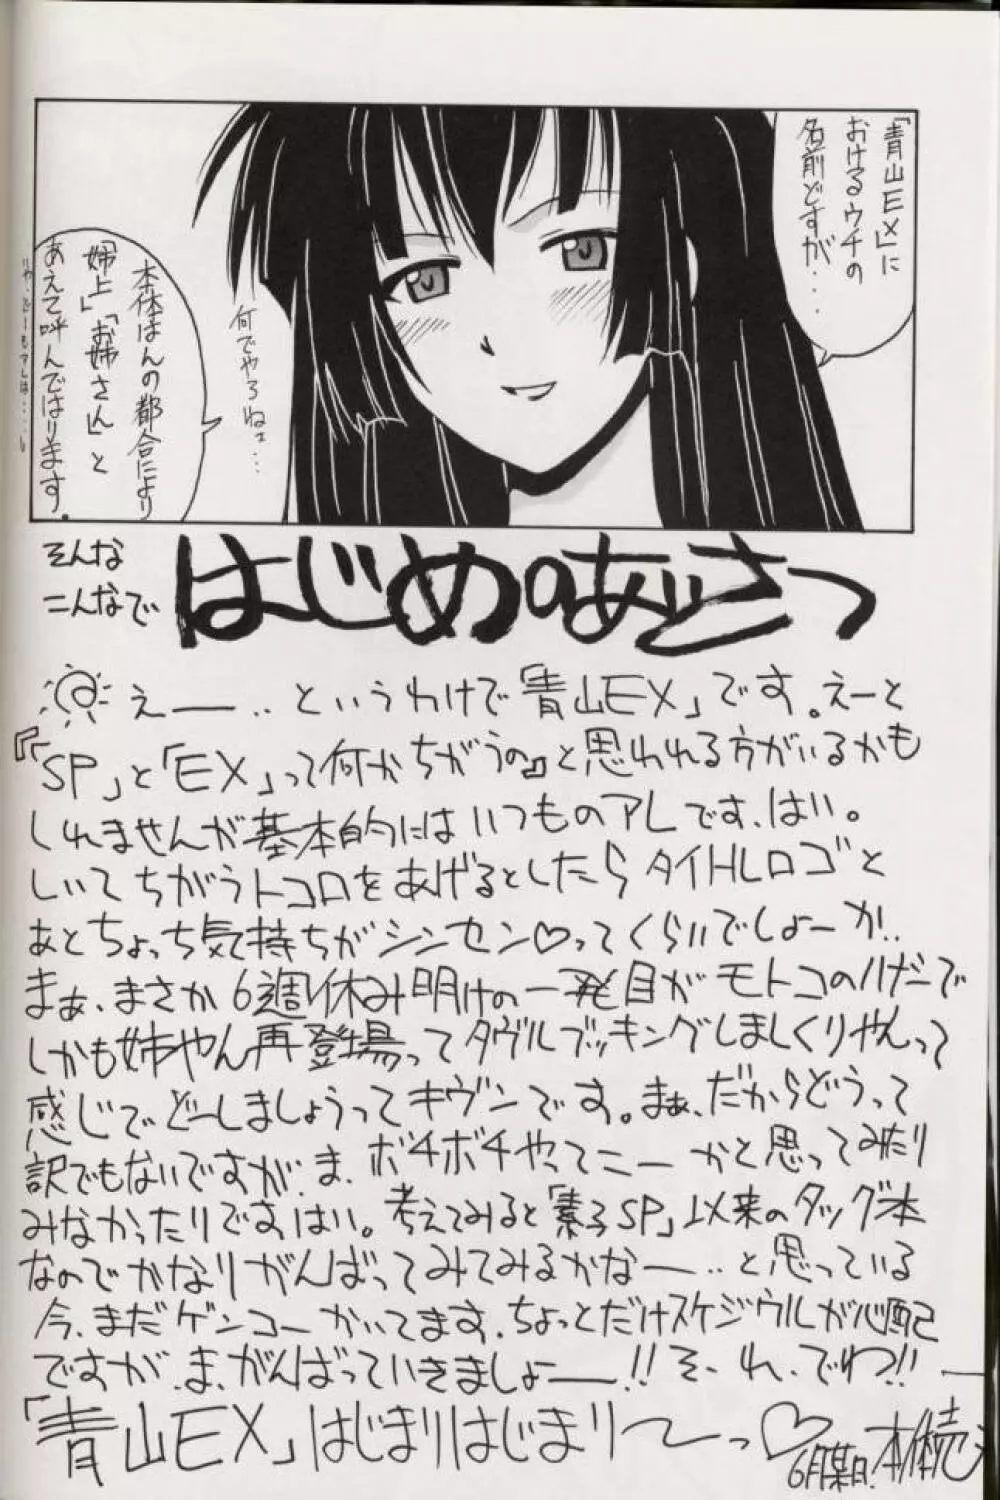 「青山EX」に
おけるウチの
名前どすが・・・
何でやろねェ・・・
本体はんの都合により
「姉上」「お姉さん」と
あえて呼んではります。
そんな
こんなで
はじめのあいさつ
えー‥というわけで「青山EX」です。えーと
『「SP」と「EX」って何かちがうの』と思われる方がいるかも
しれませんが基本的にはいつものアレです、はい。
しいてちがうトコロをあげるとしたらタイトルロゴと
あとちょっち気持ちがシンセン♡ってくらいでしょーか‥
まぁ、まさか6週休み明けの一発目がモトコのハナシーで
しかも姉やん再登場ってダヴルブッキングしましくりやんって
感じで、どーしましょうってキヴンです。まぁ、だからどうって
訳でもないですが、ま、ボチボチやってこーかと思ってみたり
みなかったりですはい。考えてみると「素子SP」以来のタッグ本
なのでかなりがんばってみてみるかなー‥と思っている
今、まだゲンコーかいてます、ちょっとだけスケジウルが心配
ですが、ま、がんばっていきましょー!!そ、れ、でわ!!
「青山EX」はじまりはじまり〜っ♡
6月某日、本体続